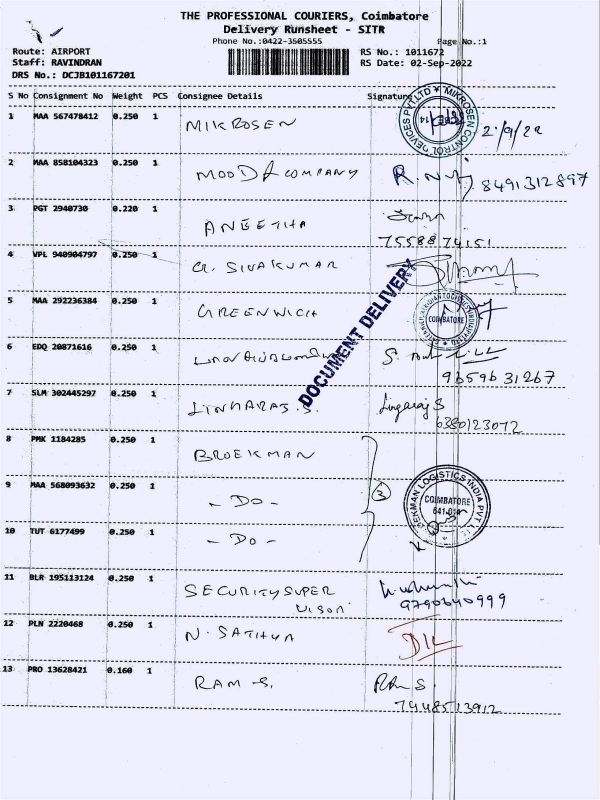 THE PROFESSIONAL COURIERS, Coimbatore
Delivery Runsheet - SITR
Phone No.:0422-3505555
Page No.:1
Route: AIRPORT
Staff: RAVINDRAN
DRS No.: DCJB101167201
RS No.: 1011672
RS Date: 02-Sep-2022
S No Consignment No Weight PCS Consignee Details Signature
1 MAA 567478412 0.250 1 MIKROSEN
MIKROSEN CONTROL DEVICES PVT.LTD
2/9/22
2 MAA 858104323 0.250 1 MOOD & COMPANY
8491312897
3 PGT 2940730 0.220 1 ANEETHA
7558874151
4 VPL 940904797 0.250 1 G. SIVAKUMAR
5 MAA 292236384 0.250 1 GREENWICH
COIMBATORE
DOCUMENT DELIVERY
6 EDQ 20871616 0.250 1
9659631267
7 SLM 302445297 0.250 1 LINGARAJ.S. Lingaraj S
6380123072
8 PMK 1184285 0.250 1 BROEKMAN
9 MAA 568093632 0.250 1 - DO - 3
EKMAN LOGISTICS INDIA PVT LTD
COIMBATORE
641-014
10 TUT 6177499 0.250 1 - DO -
11 BLR 195113124 0.250 1 SECURITY SUPER
VISOR 9790640999
12 PLN 2220468 0.250 1 N. SATHYA
13 PRO 13628421 0.160 1 RAM S. RAM S.
7448513912